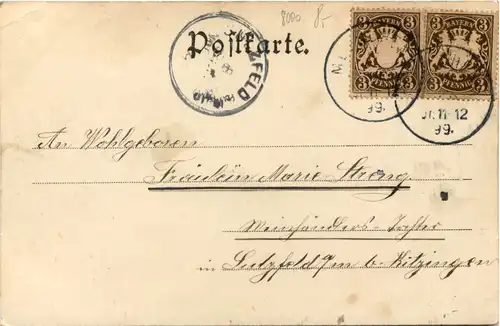 8000 8,-
Postkarte.
BAYERN BAYERN
3 3 3 3
PFENNIG PFENNIG
FELD
11-12 11-12
99. 99.
An Wohlgeboren
Fräulein Marie Streng
Weinhändlers-Tochter
in Sulzfeld a/m b. Kitzingen